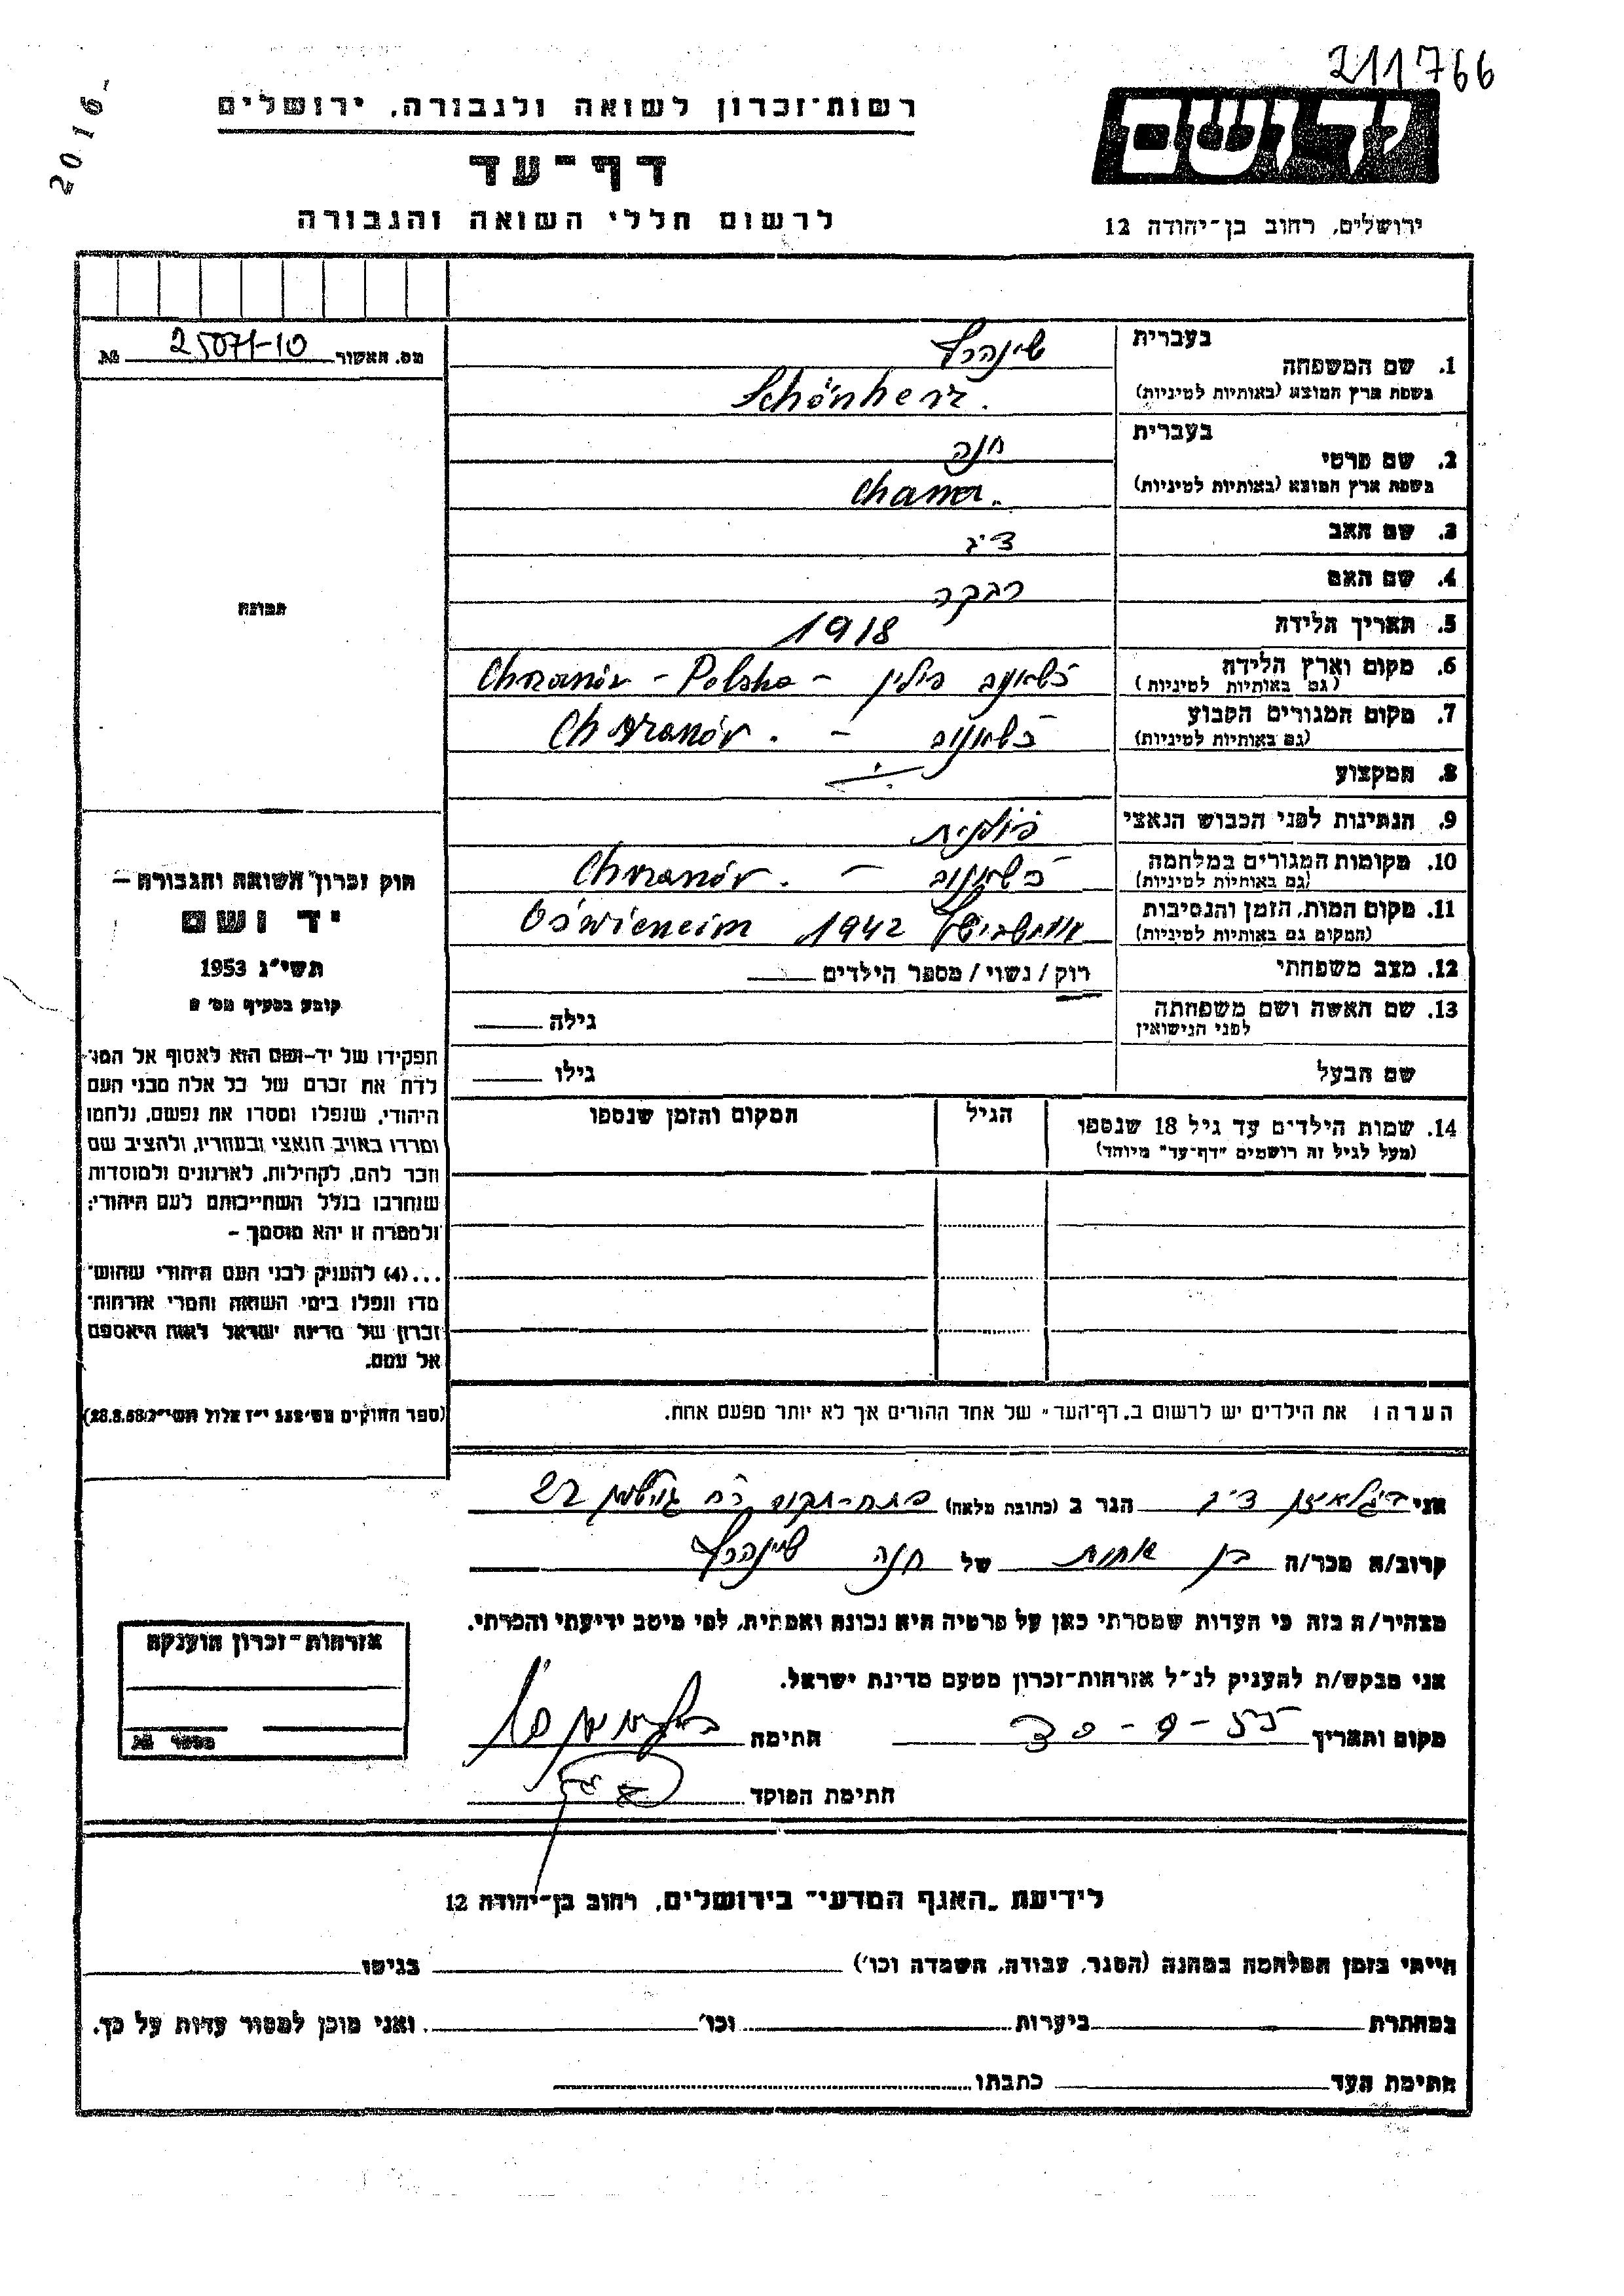 211766
20 16-
רשות-זכרון לשואה ולגבורה, ירושלים
דף-עד
לרשום חללי השואה והגבורה
יד ושם
ירושלים, רחוב בן-יהודה 12
מס. האשור 25071-10 №
תמונה
בעברית
1. שם המשפחה
בשפת ארץ המוצא (באותיות לטיניות)
Schönherz.
בעברית חנה
2. שם פרטי
בשפת ארץ המוצא (באותיות לטיניות)
Chana.
3. שם האב
4. שם האם רבקה
5. תאריך הלידה 1918
6. מקום וארץ הלידה פולין - Chrzanów - Polska
(גם באותיות לטיניות)
7. מקום המגורים הקבוע - Chrzanów.
(גם באותיות לטיניות)
8. המקצוע
9. הנתינות לפני הכבוש הנאצי פולנית
10. מקומות המגורים במלחמה - Chrzanów.
(גם באותיות לטיניות)
11. מקום המות, הזמן והנסיבות 1942 Oświeneim
(המקום גם באותיות לטיניות)
12. מצב משפחתי רוק / נשוי / מספר הילדים
13. שם האשה ושם משפחתה גילה
לפני הנישואין
שם הבעל גילו
14. שמות הילדים עד גיל 18 שנספו הגיל המקום והזמן שנספו
(מעל לגיל זה רושמים "דף-עד" מיוחד)
הערה: את הילדים יש לרשום ב"דף-העד" של אחד ההורים אך לא יותר מפעם אחת.
חוק זכרון השואה והגבורה –
יד ושם
תשי"ג 1953
קובע בסעיף מס'
תפקידו של יד-ושם הוא לאסוף אל המו-
לדת את זכרם של כל אלה מבני העם
היהודי, שנפלו ומסרו את נפשם, נלחמו
ומרדו באויב הנאצי ובעוזריו, ולהציב שם
וזכר להם, לקהילות, לארגונים ולמוסדות
שנחרבו בגלל השתייכותם לעם היהודי;
ולמטרה זו יהא מוסמך –
...(4) להעניק לבני העם היהודי שהוש-
מדו ונפלו בימי השואה והמרי אזרחות-
זכרון של מדינת ישראל לאות היאספם
אל עמם.
(ספר החוקים מס' 132 י"ז אלול תשי"ג 28.8.53)
אני הגר ב (כתובת מלאה) פתח-תקוה רח 22
קרוב/ה מכר/ה בן אחות של חנה
מצהיר/ה בזה כי העדות שמסרתי כאן על פרטיה היא נכונה ואמתית, לפי מיטב ידיעתי והכרתי.
אני מבקש/ת להעניק לנ"ל אזרחות-זכרון מטעם מדינת ישראל.
מקום ותאריך חתימה
חתימת הפוקד
אזרחות-זכרון הוענקה
מספר №
לידיעת "האגף המדעי" בירושלים, רחוב בן-יהודה 12
הייתי בזמן המלחמה במחנה (הסגר, עבודה, השמדה וכו') בגיטו
במחתרת ביערות וכו' ואני מוכן למסור עדות על כך.
חתימת העד כתבתו